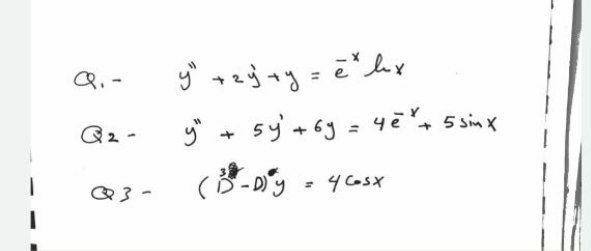 Q1- y" + 2y' + y = e⁻ˣ ln x
Q2- y" + 5y' + 6y = 4e⁻ˣ + 5 sin x
Q3- (D³ - D) y = 4 cos x